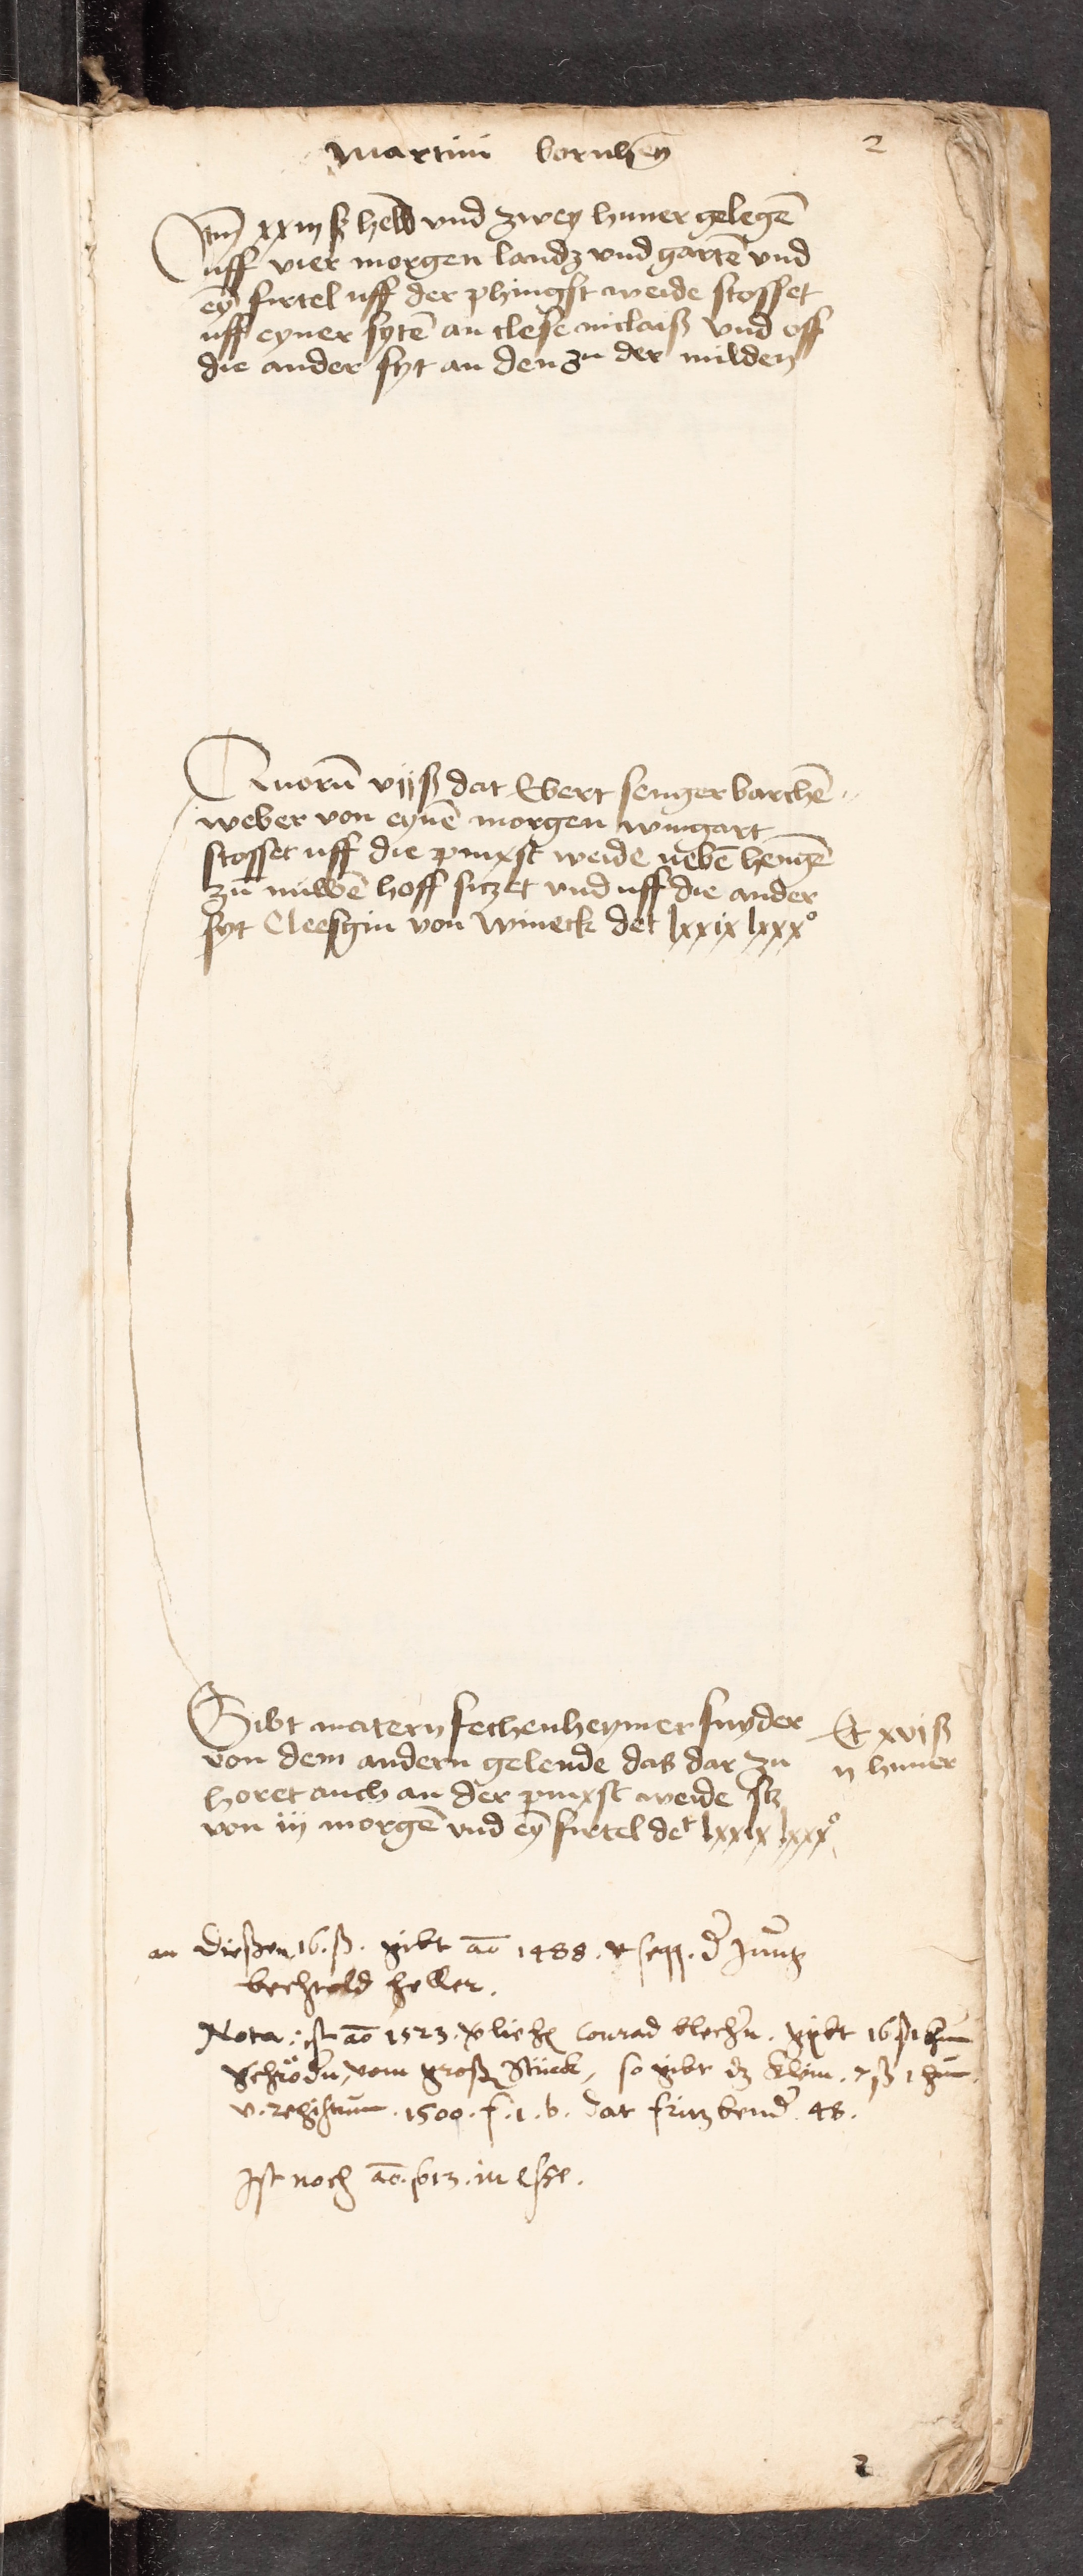 Martini bornhey̅ 2
Ite̅ xxiij ß held̅ vnd zwey huner gelege̅
uff vier morgen landz vnd garte̅ vnd
ey̅ firtel uff der phingst weide stosset
uff eyner syte̅ an clese niclaiß vnd off
die ander syt an den zu der milden
Quoru̅ vijß dat Ebert senger barche̅
weber von eyne̅ morgen wingart
stosset uff die pinxst weide nebe̅ henge̅
zu̅ nuwe̅ hoff sitzet vnd uff die ander
syt Cleesgin von Wineck det lxxix lxxx°
Gibt matern fechenheymer snyder
von dem andern gelende das dar zu
horet auch an der pinxst weide sz
von iij morge̅ vnd ey̅ firtel det lxxix lxxx°
Et xvjß
ij huner
an dießen 16. ß. gibt ao̅ 1488. et seqq. d' Jung
bechtold heller.
Nota: ist ao̅ 1523. Conrad gibt 16 ß 1 hun
vom groß Stück, so gibt dz klein. 7 ß 1 hun.
v. registrum. 1500. f. 1. b. dat fritz bend' 48.
Ist noch ao̅. in esse.
2